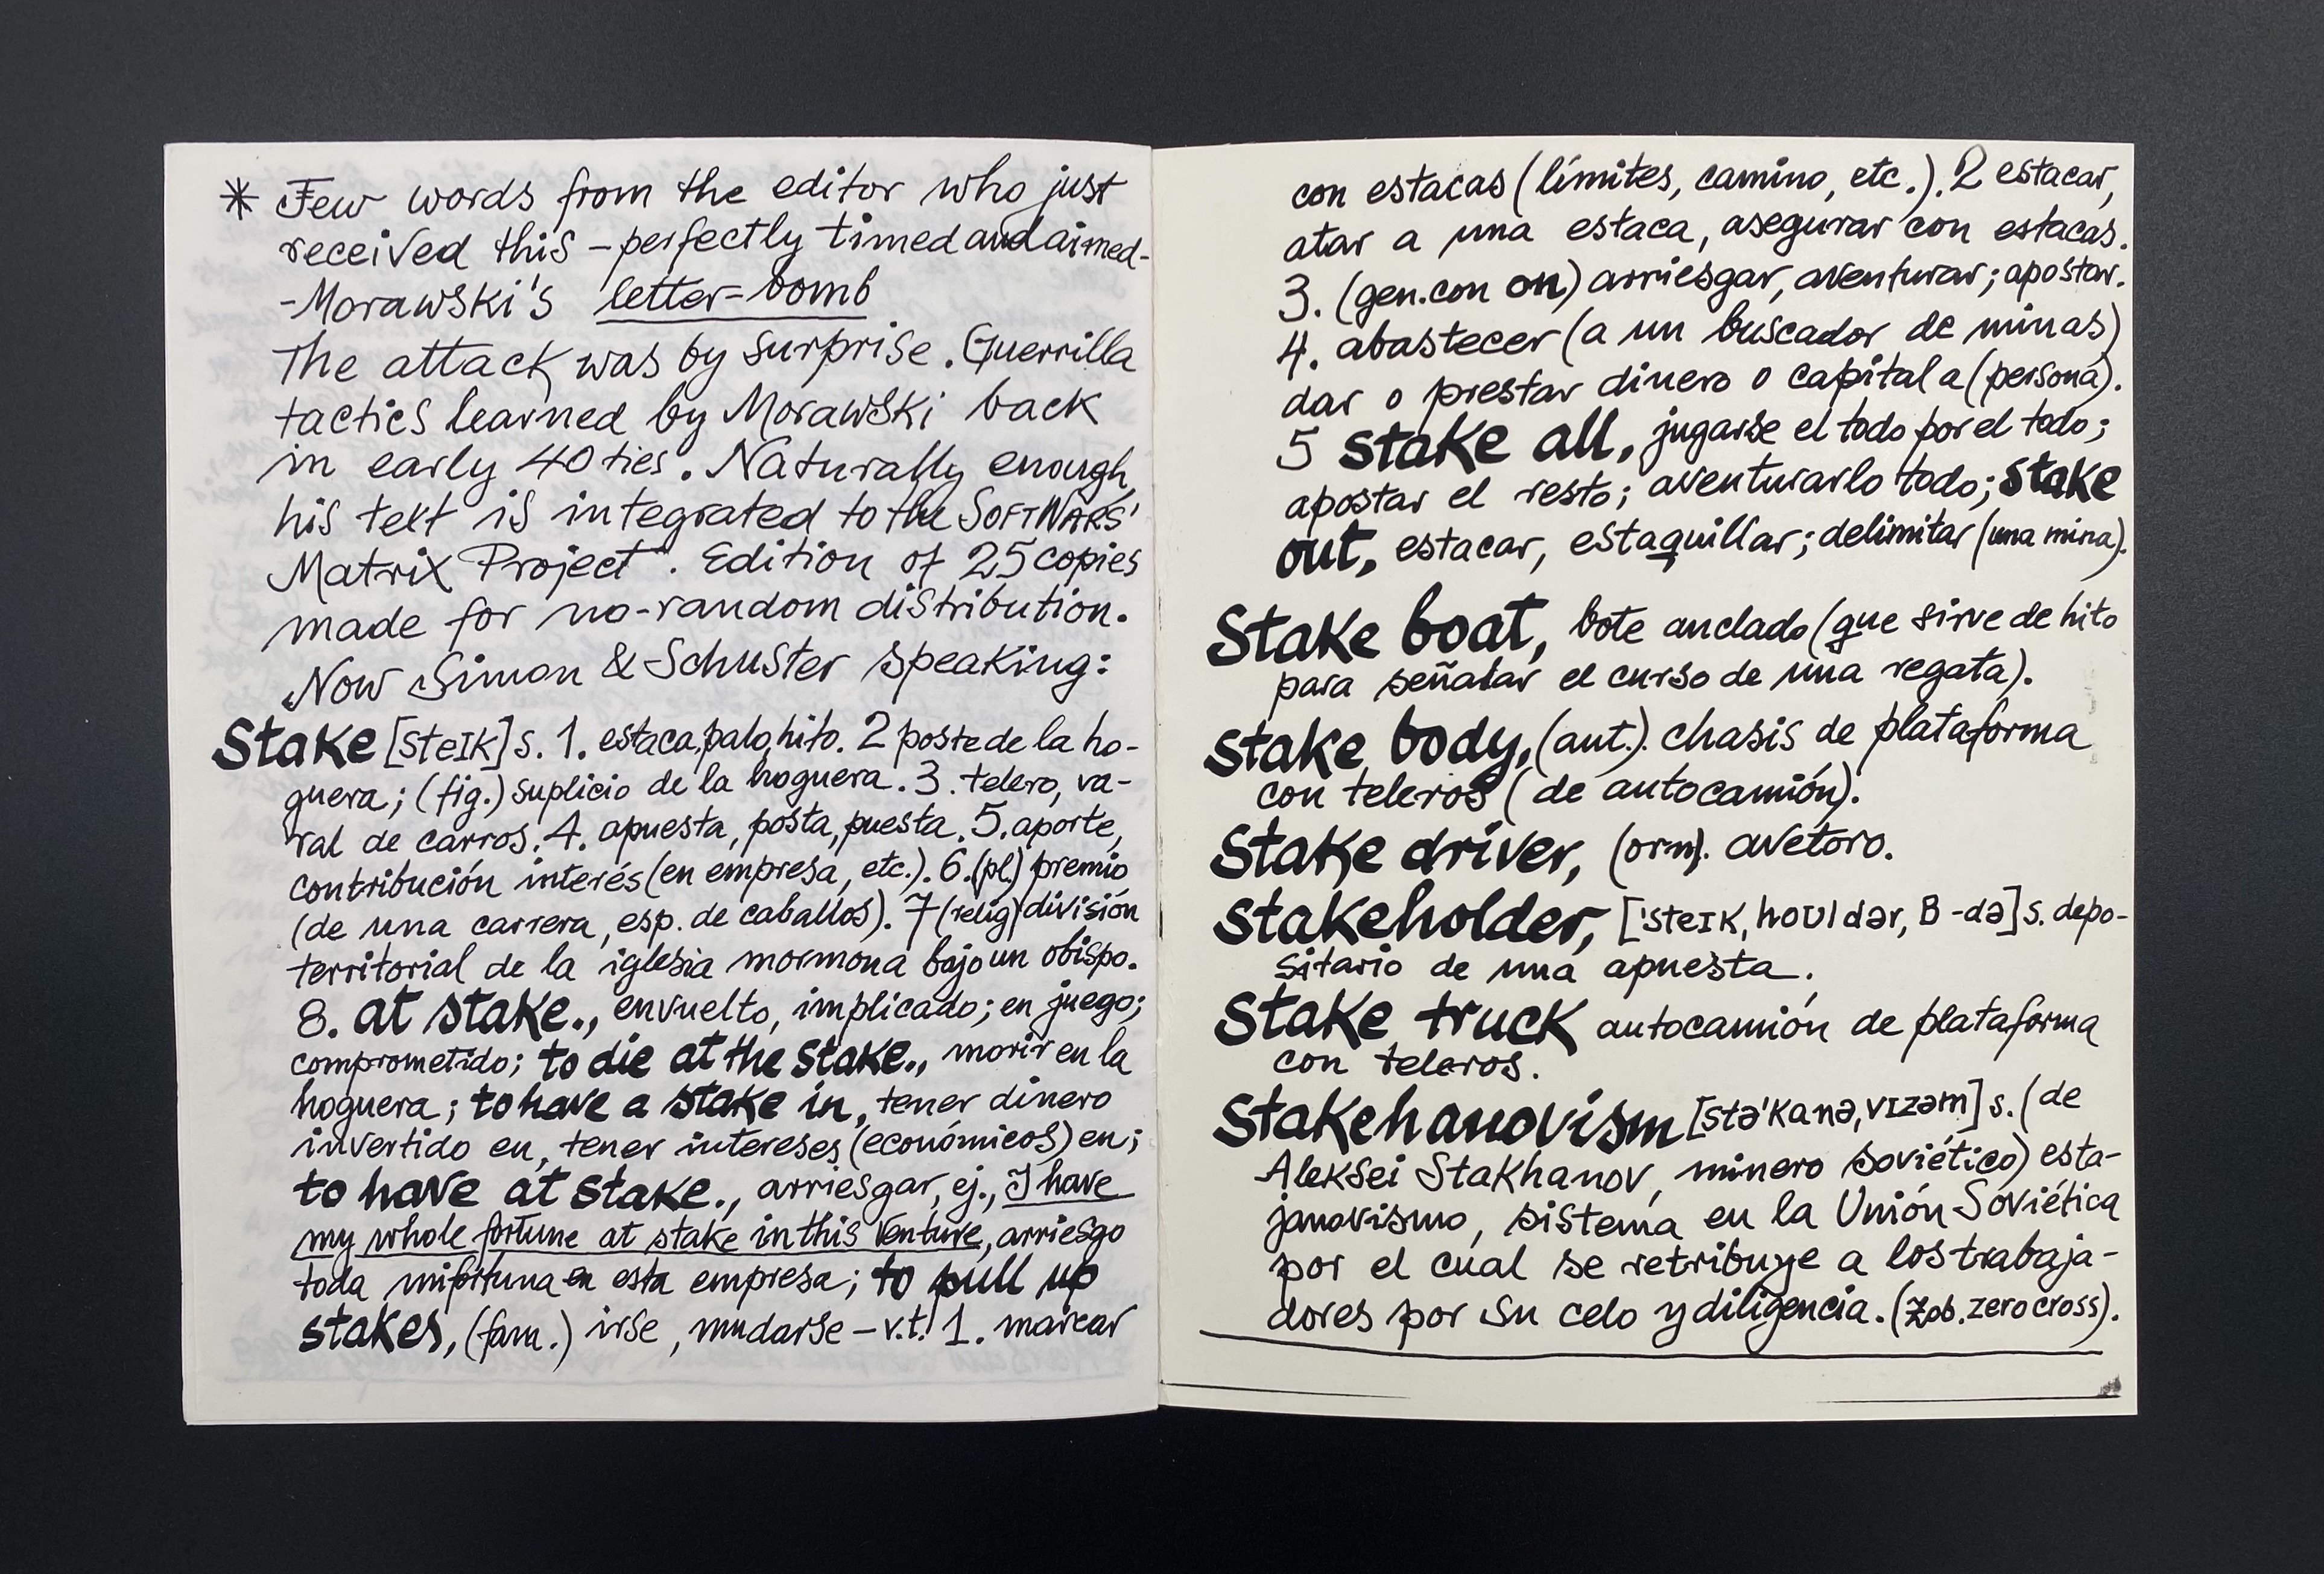 * Few words from the editor who just
received this – perfectly timed and aimed-
-Morawski's letter-bomb
The attack was by surprise. Guerrilla
tactics learned by Morawski back
in early 40 ties. Naturally enough,
his text is integrated to the SOFTWARS'
Matrix Project. Edition of 25 copies
made for no-random distribution.
Now Simon & Schuster speaking:
Stake [steIK] s. 1. estaca, palo, hito. 2 poste de la ho-
guera; (fig.) suplicio de la hoguera. 3. telero, va-
ral de carros. 4. apuesta, posta, puesta. 5. aporte,
contribución interés (en empresa, etc.). 6. (pl.) premio
(de una carrera, esp. de caballos). 7 (relig) división
territorial de la iglesia mormona bajo un obispo.
8. at stake., envuelto, implicado; en juego;
comprometido; to die at the stake., morir en la
hoguera; to have a stake in, tener dinero
invertido en, tener intereses (económicos) en;
to have at stake., arriesgar, ej., I have
my whole fortune at stake in this venture, arriesgo
toda mi fortuna en esta empresa; to pull up
stakes, (fam.) irse, mudarse – v.t. 1. marcar
con estacas (límites, camino, etc.). 2 estacar,
atar a una estaca, asegurar con estacas.
3. (gen. con on) arriesgar, aventurar; apostar.
4. abastecer (a un buscador de minas)
dar o prestar dinero o capital a (persona).
5 stake all, jugarse el todo por el todo;
apostar el resto; aventurarlo todo; stake
out, estacar, estaquillar; delimitar (una mina).
Stake boat, bote anclado (que sirve de hito
para señalar el curso de una regata).
stake body, (aut.). chasis de plataforma
con teleros (de autocamión).
Stake driver, (orn). avetoro.
stakeholder, ['steIK,hoʊldər, B -də] s. depo-
sitario de una apuesta.
Stake truck autocamión de plataforma
con teleros.
Stakehanovism [stə'Kanə,vIzəm] s. (de
Aleksei Stakhanov, minero soviético) esta-
janovismo, sistema en la Unión Soviética
por el cual se retribuye a los trabaja-
dores por su celo y diligencia. (Zob. zero cross).